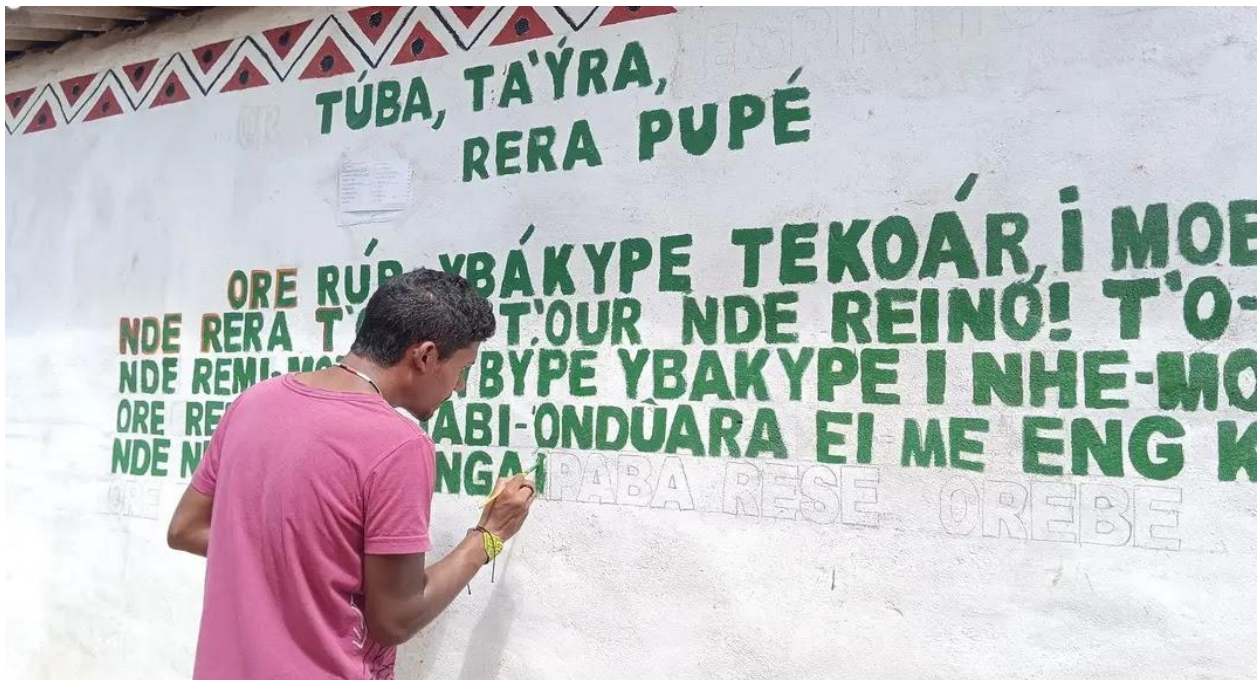 TÚBA, TA'ÝRA, ESPIRIT
RERA PUPÉ
ORE RÚB YBÁKYPE TEKOÁR, I MOE
NDE RERA T' T'OUR NDE REINÓ! T'O-
NDE REMI-MO YBÝPE YBAKYPE I NHE-MO
ORE RE ABI-'ONDÛARA EI ME ENG K
NDE N NGA IPABA RESE OREBE
ORE